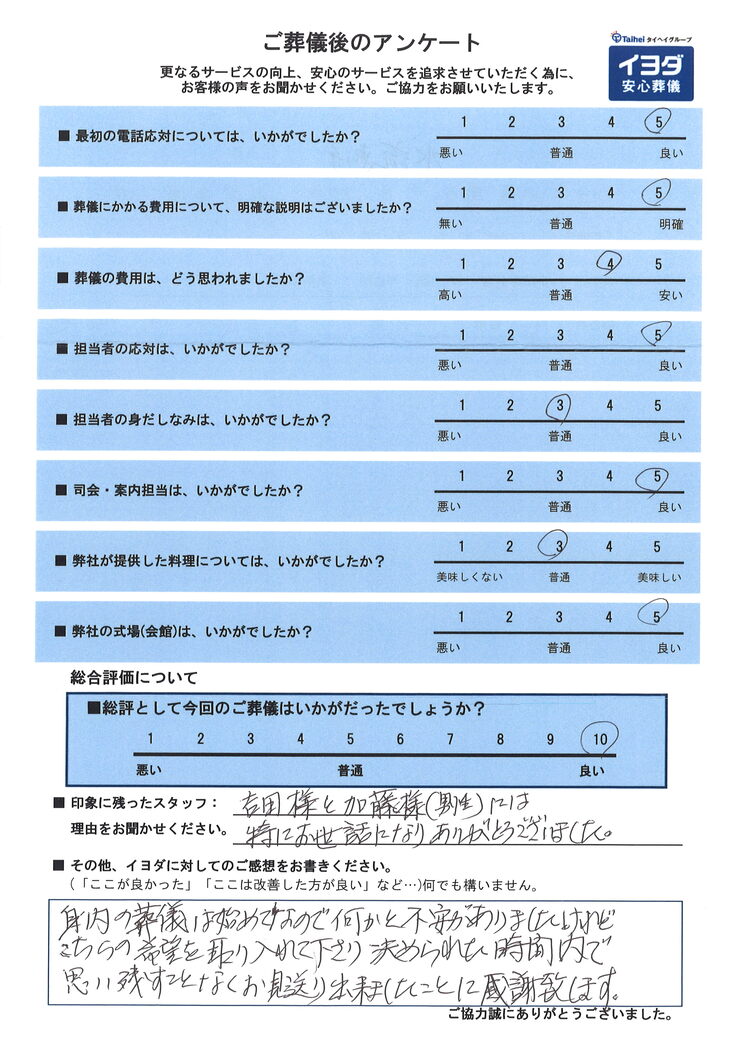 ご葬儀後のアンケート
Taihei タイヘイグループ
イヨダ
安心葬儀
更なるサービスの向上、安心のサービスを追求させていただく為に、
お客様の声をお聞かせください。ご協力をお願いいたします。
■ 最初の電話応対については、いかがでしたか?
1 2 3 4 5
悪い 普通 良い
■ 葬儀にかかる費用について、明確な説明はございましたか?
1 2 3 4 5
無い 普通 明確
■ 葬儀の費用は、どう思われましたか?
1 2 3 4 5
高い 普通 安い
■ 担当者の応対は、いかがでしたか?
1 2 3 4 5
悪い 普通 良い
■ 担当者の身だしなみは、いかがでしたか?
1 2 3 4 5
悪い 普通 良い
■ 司会・案内担当は、いかがでしたか?
1 2 3 4 5
悪い 普通 良い
■ 弊社が提供した料理については、いかがでしたか?
1 2 3 4 5
美味しくない 普通 美味しい
■ 弊社の式場(会館)は、いかがでしたか?
1 2 3 4 5
悪い 普通 良い
総合評価について
■総評として今回のご葬儀はいかがだったでしょうか?
1 2 3 4 5 6 7 8 9 10
悪い 普通 良い
■ 印象に残ったスタッフ： 吉田様と加藤様(男性)には
理由をお聞かせください。 特にお世話になりありがとうございました。
■ その他、イヨダに対してのご感想をお書きください。
(「ここが良かった」「ここは改善した方が良い」など…)何でも構いません。
身内の葬儀は始めてなので何かと不安がありましたけれど
こちらの希望を取り入れて下さり決められた時間内で
思い残すことなくお見送り出来ましたことに感謝致します。
ご協力誠にありがとうございました。